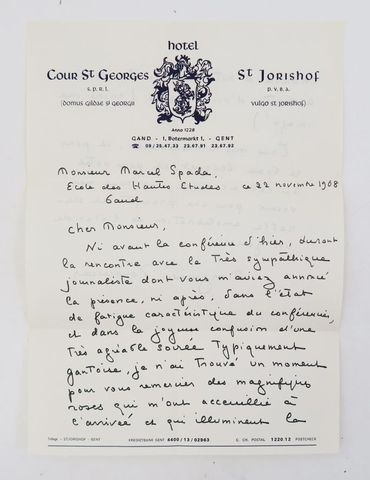 hotel
Cour St Georges
St Jorishof
s.p.r.l.
p.v.b.a.
(domus gildae st georgii
vulgo st jorishof)
Anno 1228
GAND - 1, Botermarkt 1, - GENT
☎ 09 / 25.47.33 23.67.91 23.67.92
Monsieur Marcel Spada,
Ecole des Hautes Etudes ce 22 novembre 1968
Gand
cher Monsieur,
Ni avant la conférence d'hier, durant
la rencontre avec la très sympathique
journaliste dont vous m'aviez annoncé
la présence, ni après, dans l'état
de fatigue caractéristique du conférencier,
et dans la joyeuse confusion d'une
très agréable soirée typiquement
gantoise, je n'ai trouvé un moment
pour vous remercier des magnifiques
roses qui m'ont accueillie à
l'arrivée et qui illuminent la
ST-JORISHOF - GENT
KREDIETBANK GENT 4400 / 13 / 02963
C. CH. POSTAL 1220.12 POSTCHECK